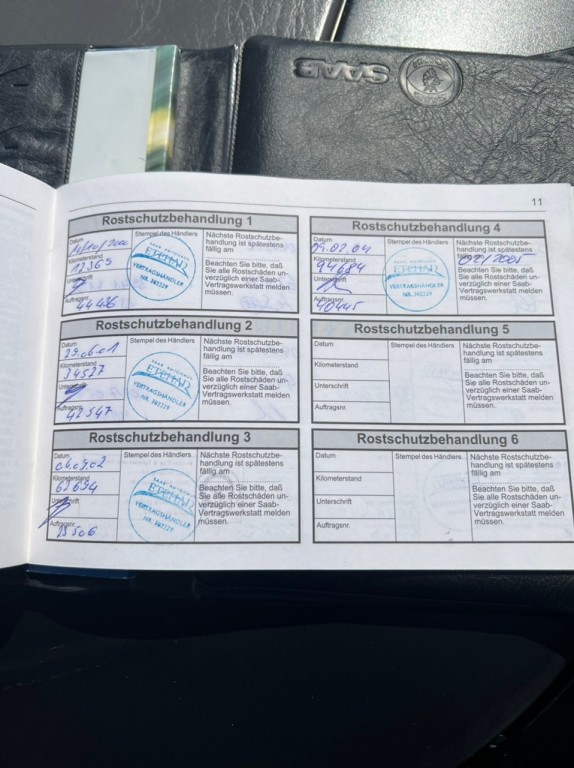 SAAB
11
Rostschutzbehandlung 1
Datum
Stempel des Händlers
Nächste Rostschutzbe-
handlung ist spätestens
fällig am
Kilometerstand
12365
Beachten Sie bitte, daß
Sie alle Rostschäden un-
verzüglich einer Saab-
Vertragswerkstatt melden
müssen.
Auftragsnr.
VERTRAGSHÄNDLER
Rostschutzbehandlung 2
Datum
29.06.01
Stempel des Händlers
Nächste Rostschutzbe-
handlung ist spätestens
fällig am
Kilometerstand
34527
Beachten Sie bitte, daß
Sie alle Rostschäden un-
verzüglich einer Saab-
Vertragswerkstatt melden
müssen.
VERTRAGSHÄNDLER
Rostschutzbehandlung 3
Datum
04.07.02
Stempel des Händlers
Nächste Rostschutzbe-
handlung ist spätestens
fällig am
Kilometerstand
Beachten Sie bitte, daß
Sie alle Rostschäden un-
verzüglich einer Saab-
Vertragswerkstatt melden
müssen.
Auftragsnr.
VERTRAGSHÄNDLER
Rostschutzbehandlung 4
Datum
Stempel des Händlers
Nächste Rostschutzbe-
handlung ist spätestens
fällig am
02/2005
Kilometerstand
94684
Beachten Sie bitte, daß
Sie alle Rostschäden un-
verzüglich einer Saab-
Vertragswerkstatt melden
müssen.
Auftragsnr.
40445
VERTRAGSHÄNDLER
Rostschutzbehandlung 5
Datum
Stempel des Händlers
Nächste Rostschutzbe-
handlung ist spätestens
fällig am
Kilometerstand
Beachten Sie bitte, daß
Sie alle Rostschäden un-
verzüglich einer Saab-
Vertragswerkstatt melden
müssen.
Unterschrift
Auftragsnr.
Rostschutzbehandlung 6
Datum
Stempel des Händlers
Nächste Rostschutzbe-
handlung ist spätestens
fällig am
Kilometerstand
Beachten Sie bitte, daß
Sie alle Rostschäden un-
verzüglich einer Saab-
Vertragswerkstatt melden
müssen.
Unterschrift
Auftragsnr.